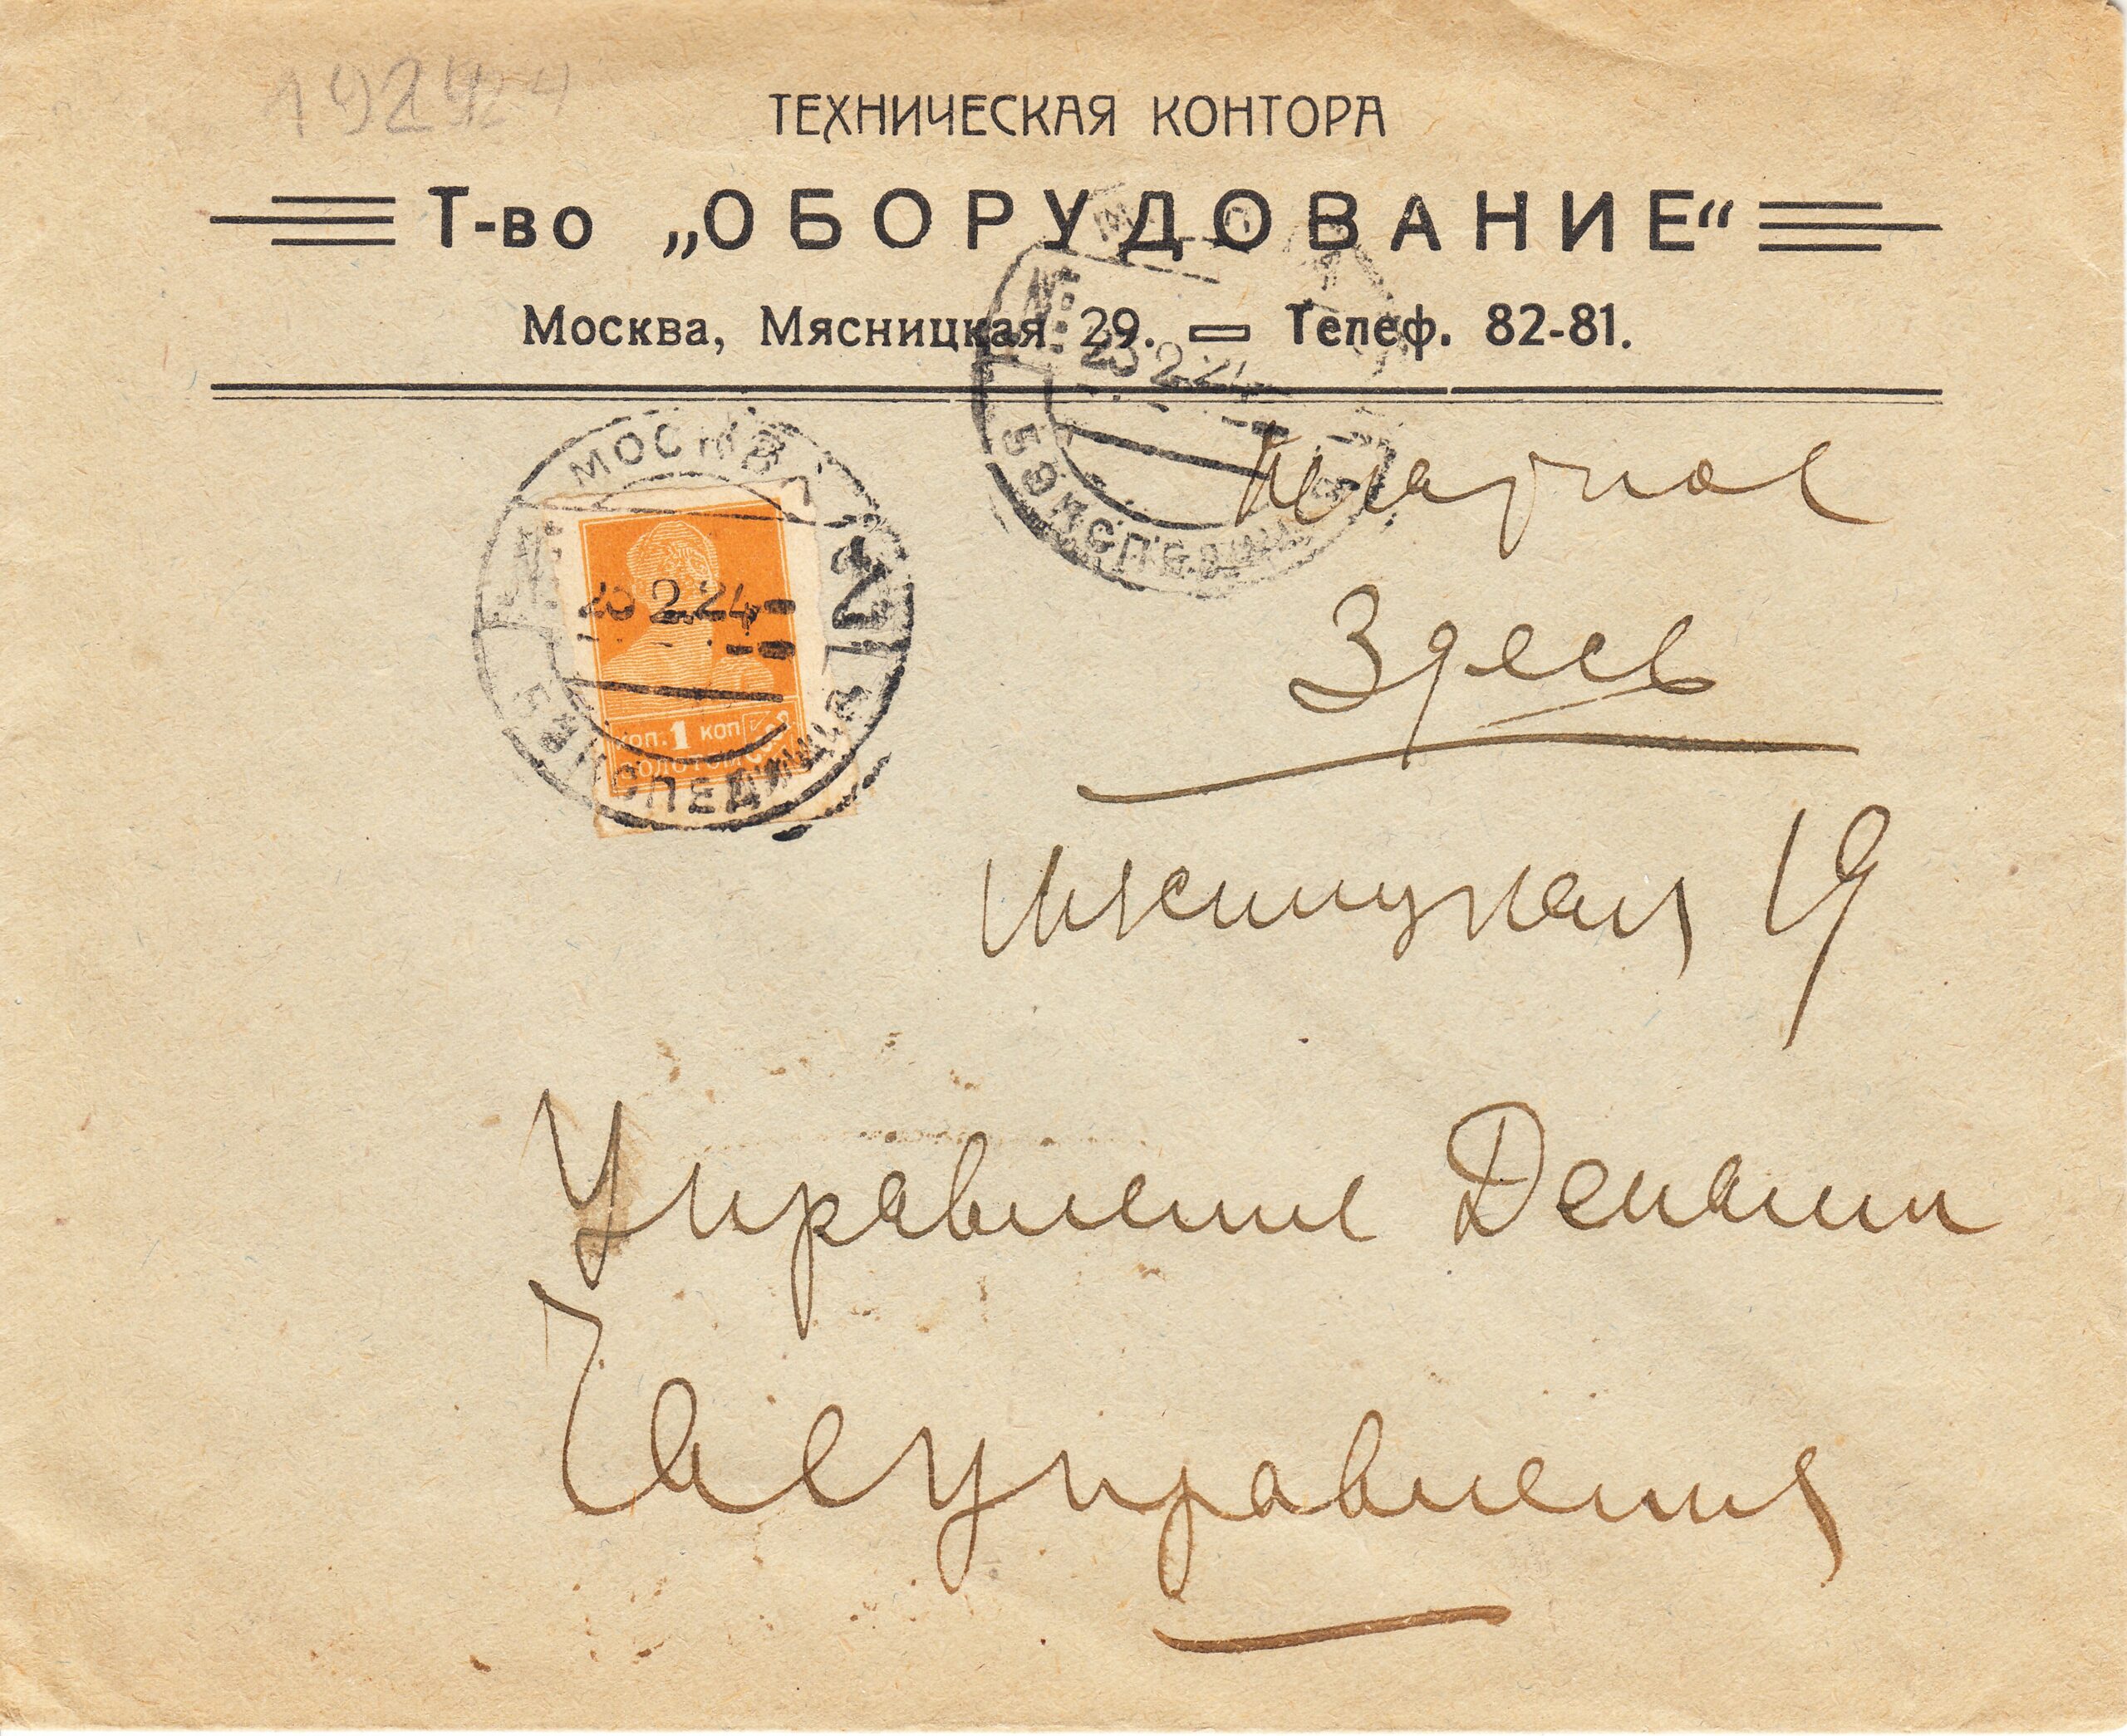 1924 24
ТЕХНИЧЕСКАЯ КОНТОРА
Т-во „ОБОРУДОВАНИЕ“
Москва, Мясницкая 29. — Телеф. 82-81.
МОСКВА
№: 2
20 2.24
5 ЭКСПЕДИЦИЯ
КОП. 1 КОП
ЗОЛОТОМ
№:
20 2.24
5 ЭКСПЕДИЦИЯ
Здесь
Мясницкая 19
Управление Делами
управления